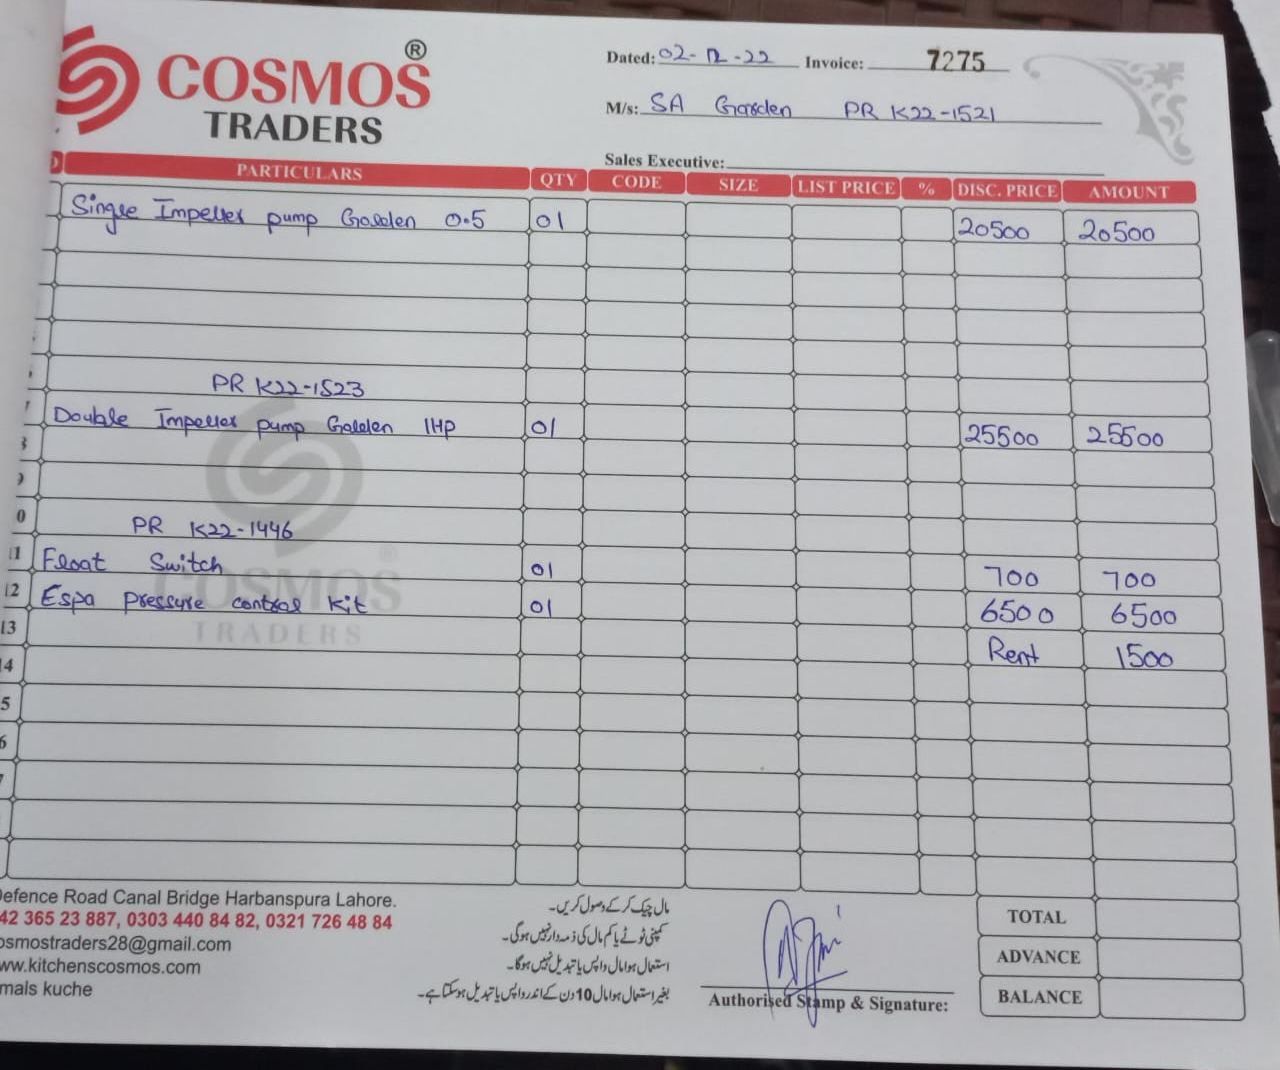 COSMOS ®
TRADERS
Dated: 02-12-22 Invoice: 7275
M/s: SA Garden PR K22-1521
Sales Executive:
PARTICULARS QTY CODE SIZE LIST PRICE % DISC. PRICE AMOUNT
Single Impeller pump Golden 0.5 01 20500 20500
PR K22-1523
Double Impeller pump Golden 1HP 01 25500 25500
PR K22-1446
11 Float Switch 01 700 700
12 Espa pressure control kit 01 6500 6500
13 Rent 1500
COSMOS ®
TRADERS
Defence Road Canal Bridge Harbanspura Lahore.
42 365 23 887, 0303 440 84 82, 0321 726 48 84
osmostraders28@gmail.com
ww.kitchenscosmos.com
mals kuche
مال چیک کر کے وصول کریں۔
کمپنی ٹوٹے یا کم مال کی ذمہ دار نہیں ہوگی۔
استعمال ہوا مال واپس یا تبدیل نہیں ہوگا۔
بغیر استعمال ہوا مال 10 دن کے اندر واپس یا تبدیل ہوسکتا ہے۔
Authorised Stamp & Signature:
TOTAL
ADVANCE
BALANCE